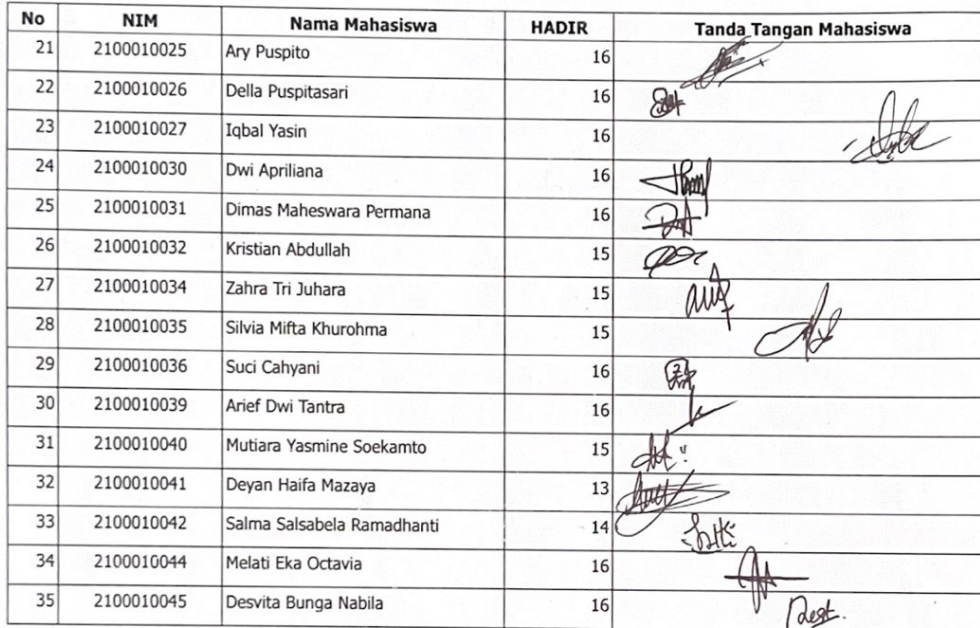 No NIM Nama Mahasiswa HADIR Tanda Tangan Mahasiswa
21 2100010025 Ary Puspito 16
22 2100010026 Della Puspitasari 16
23 2100010027 Iqbal Yasin 16
24 2100010030 Dwi Apriliana 16
25 2100010031 Dimas Maheswara Permana 16
26 2100010032 Kristian Abdullah 15
27 2100010034 Zahra Tri Juhara 15
28 2100010035 Silvia Mifta Khurohma 15
29 2100010036 Suci Cahyani 16
30 2100010039 Arief Dwi Tantra 16
31 2100010040 Mutiara Yasmine Soekamto 15
32 2100010041 Deyan Haifa Mazaya 13
33 2100010042 Salma Salsabela Ramadhanti 14
34 2100010044 Melati Eka Octavia 16
35 2100010045 Desvita Bunga Nabila 16